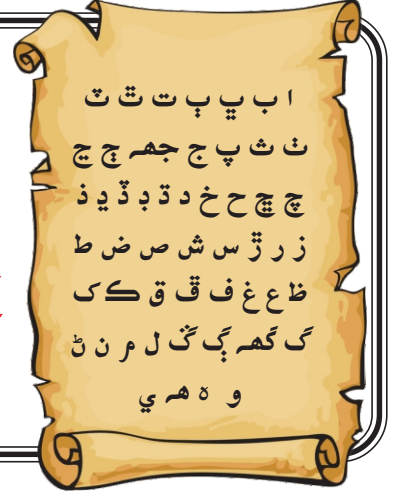 ا ب ڀ ٻ ت ٿ ٽ
ٺ ث پ ج جهہ ڄ ڃ
چ ڇ ح خ د ڌ ڊ ڏ ڍ ذ
ز ر ڙ س ش ص ض ط
ظ ع غ ف ڦ ق ڪ ک
گ گهہ ڳ ڱ ل م ن ڻ
و ه هہ ي